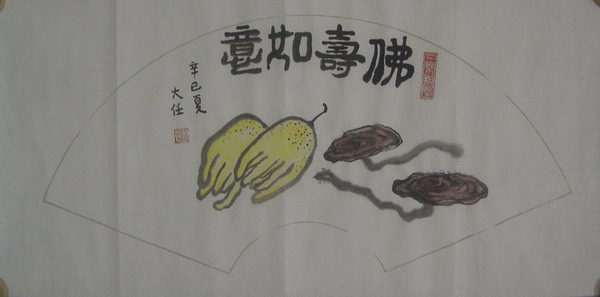 佛壽如意
辛巳夏
大任